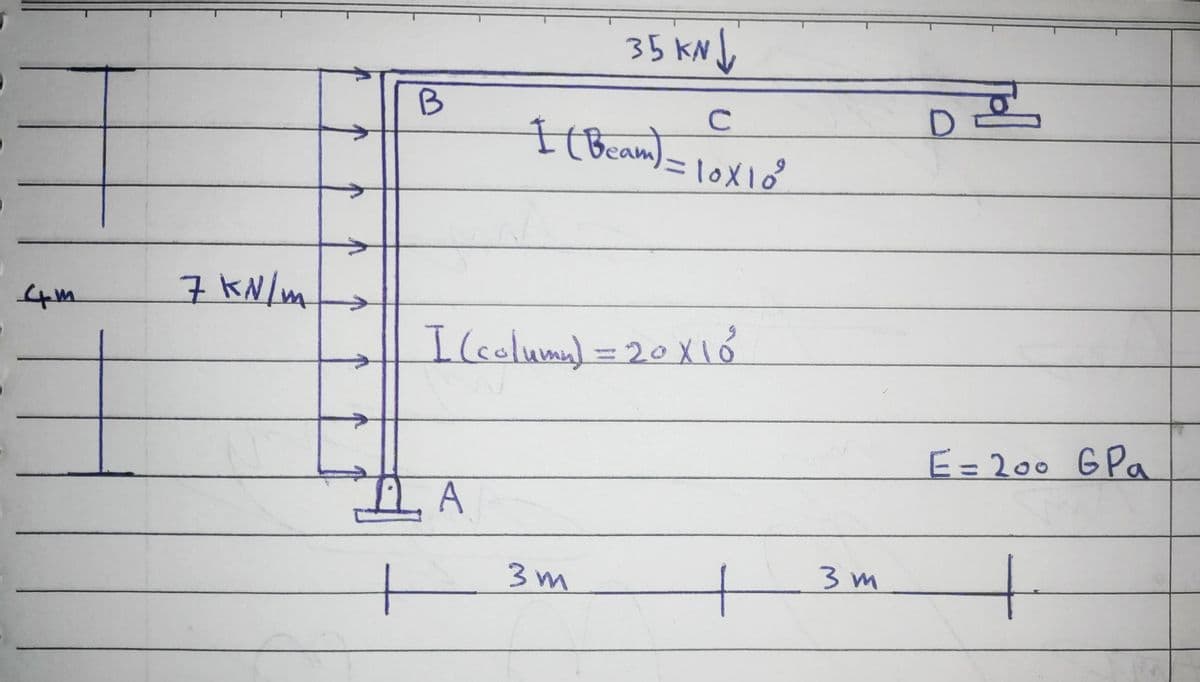 35 KN↓
B
C
D
I (Beam) = 10X10⁹
4m
7 KN/m
I (column) = 20X10⁹
E = 200 GPa
A
3 m
3 m